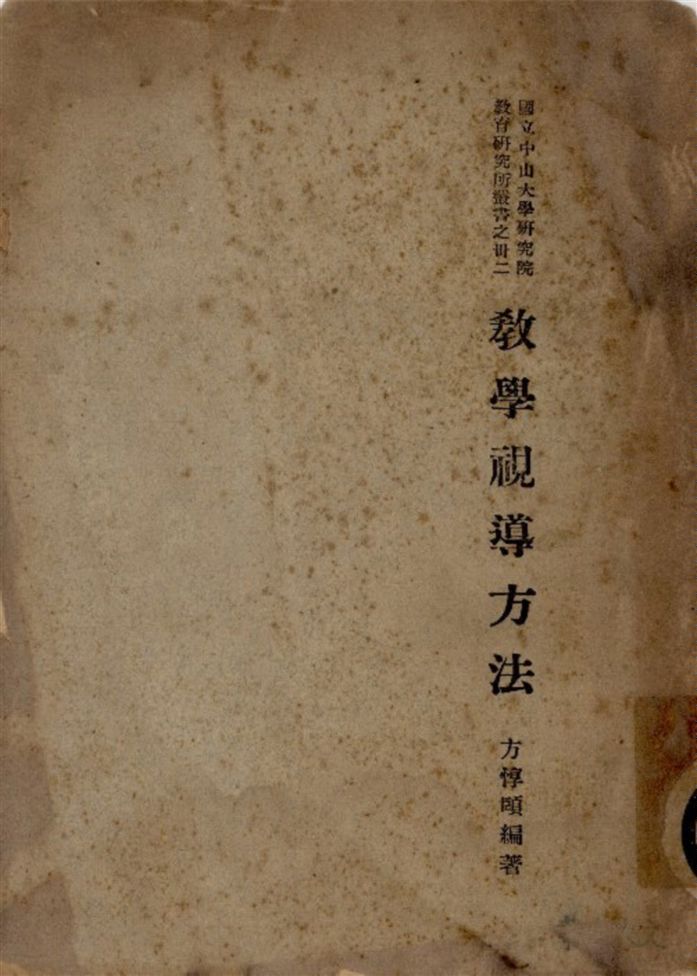 國立中山大學研究院
教育研究所叢書之卌二
教學視導方法
方惇頤編著